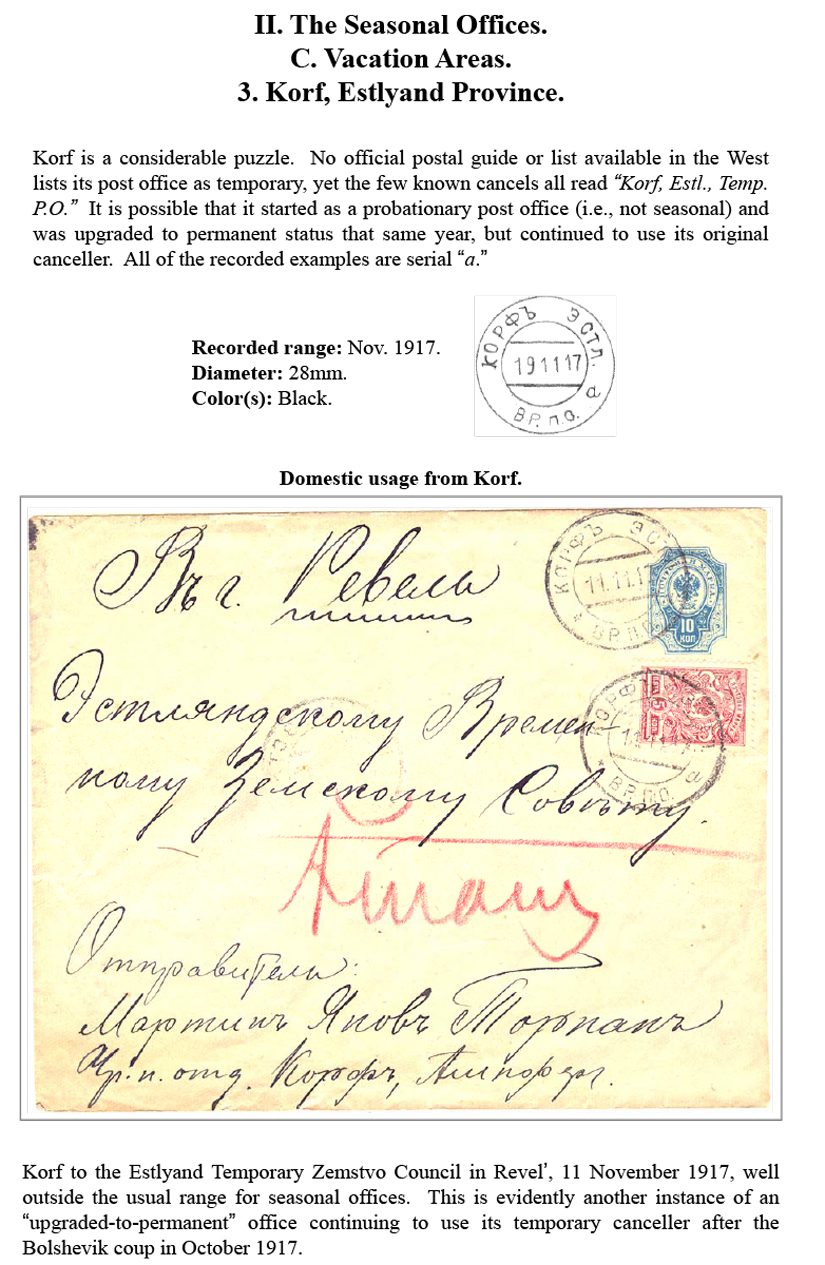 II. The Seasonal Offices.
C. Vacation Areas.
3. Korf, Estlyand Province.
Korf is a considerable puzzle.  No official postal guide or list available in the West
lists its post office as temporary, yet the few known cancels all read “Korf, Estl., Temp.
P.O.”  It is possible that it started as a probationary post office (i.e., not seasonal) and
was upgraded to permanent status that same year, but continued to use its original
canceller.  All of the recorded examples are serial “a.”
Recorded range: Nov. 1917.
Diameter: 28mm.
Color(s): Black.
КОРФЪ ЭСТЛ.
19 11 17
а
ВР. П.О.
Domestic usage from Korf.
Въ г. Ревель
КОРФЪ ЭС
11.11.1
ВР. П.О.
10
КОП
Эстляндскому Времен-
ному Земскому Совѣту.
КОРФ
5
а
ВР. П.О.
Отправитель:
Мартинъ Яковъ Торпанъ
Корфъ,
Korf to the Estlyand Temporary Zemstvo Council in Revel’, 11 November 1917, well
outside the usual range for seasonal offices.  This is evidently another instance of an
“upgraded-to-permanent” office continuing to use its temporary canceller after the
Bolshevik coup in October 1917.